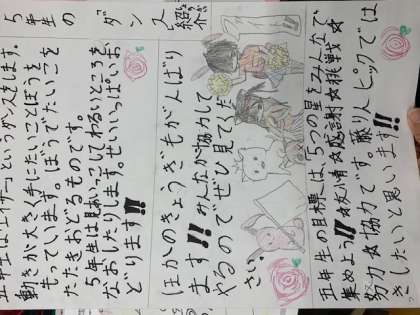 5年生のダンス紹介
五年生は「エイサー」というダンスをします。
動きが大きく手にたいことぼうを
もっています。ぼうでたいこを
たたきおどるものです。
5年生は見かいこしてわるいところを
なおしたりします。せいいっぱいお
どります!!
ほかのきょうぎもがんばり
ます!!みんなが協力して
やるのでぜひ見てくだ
さい。
五年生の目標は「5つの星をみんなで
集めよう!!☆友情☆感謝☆挑戦☆
努力☆協力です。リンピックでは
きしたいと思います!!